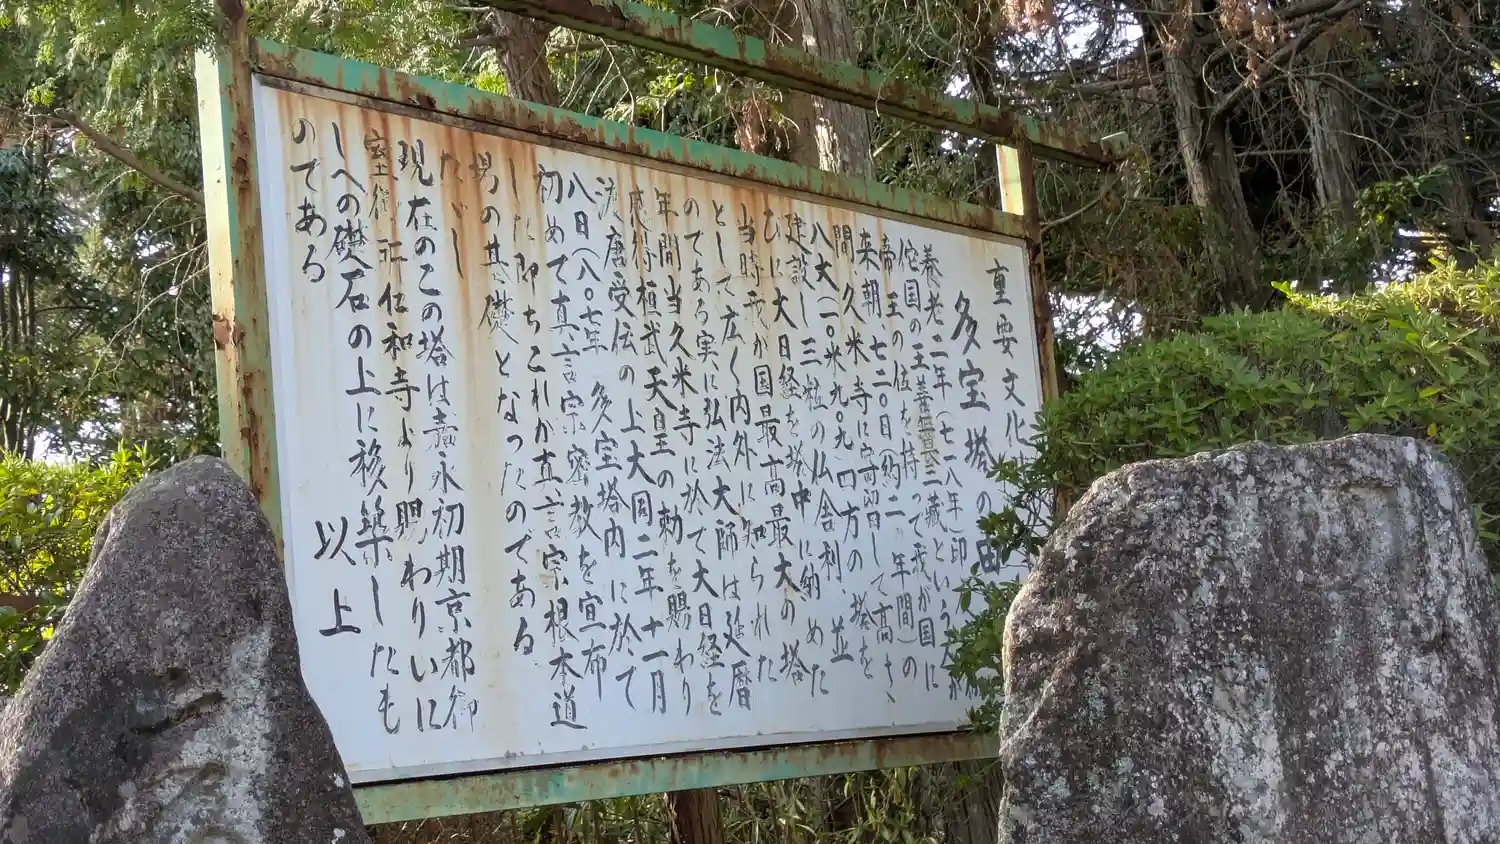 重要文化
多宝塔の由
養老二年(七一八年)印
佗国の王善無畏三蔵という
帝王の位を持って我が国に
来朝七二〇日(約二ヶ年間)の
間久米寺に寄留して高さ
八大(二〇米九〇九)四方の塔を
建設し三粒の仏舎利、並
ひに大日経を塔中に納めた
当時我が国最高最大の塔
として広く内外に知られた
のである実に弘法大師は延暦
年間当久米寺に於て大日経を
感得桓武天皇の勅を賜わり
渡唐受伝の上大同二年十一月
八日(八〇七年 多宝塔内に於て
初めて真言宗密教を宣布
した即ちこれが真言宗根本道
場の基礎となったのである
たゞし
現在のこの塔は嘉永初期京都御
室御所仁和寺より賜わりいに
しへの礎石の上に移築したも
のである
以上